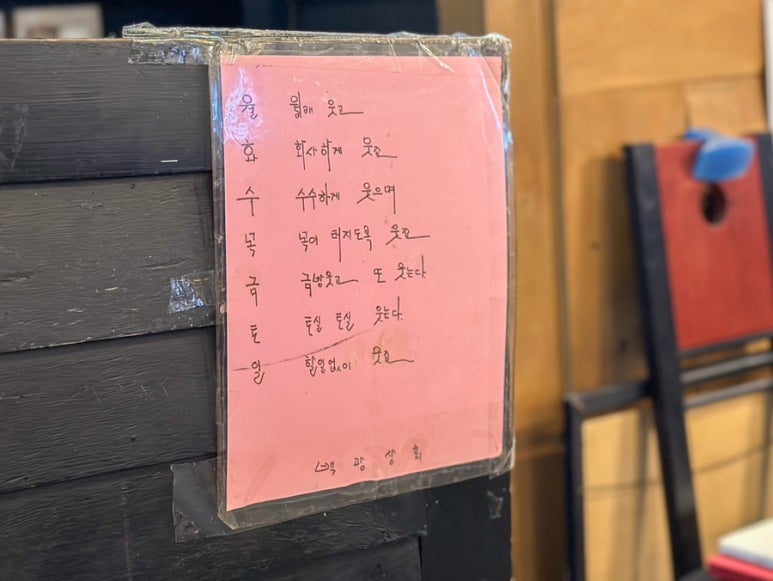 월 월래 웃고
화 화사하게 웃고
수 수수하게 웃으며
목 목이 터지도록 웃고
금 금방웃고 또 웃는다
토 토실 토실 웃는다.
일 할일없이 웃고
백광상회